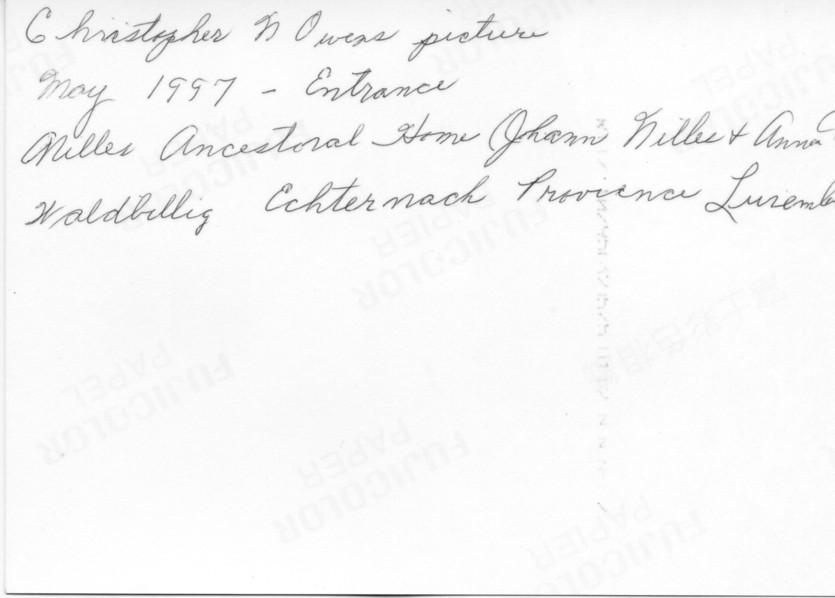 Christopher N Owens picture
May 1997 - Entrance
Nilles Ancestoral Home (Johann Nilles + Anna
Waldbillig Echternach Provience Luxemb
FUJICOLOR
PAPER
FUJICOLOR
PAPEL
FUJICOLOR
PAPIER